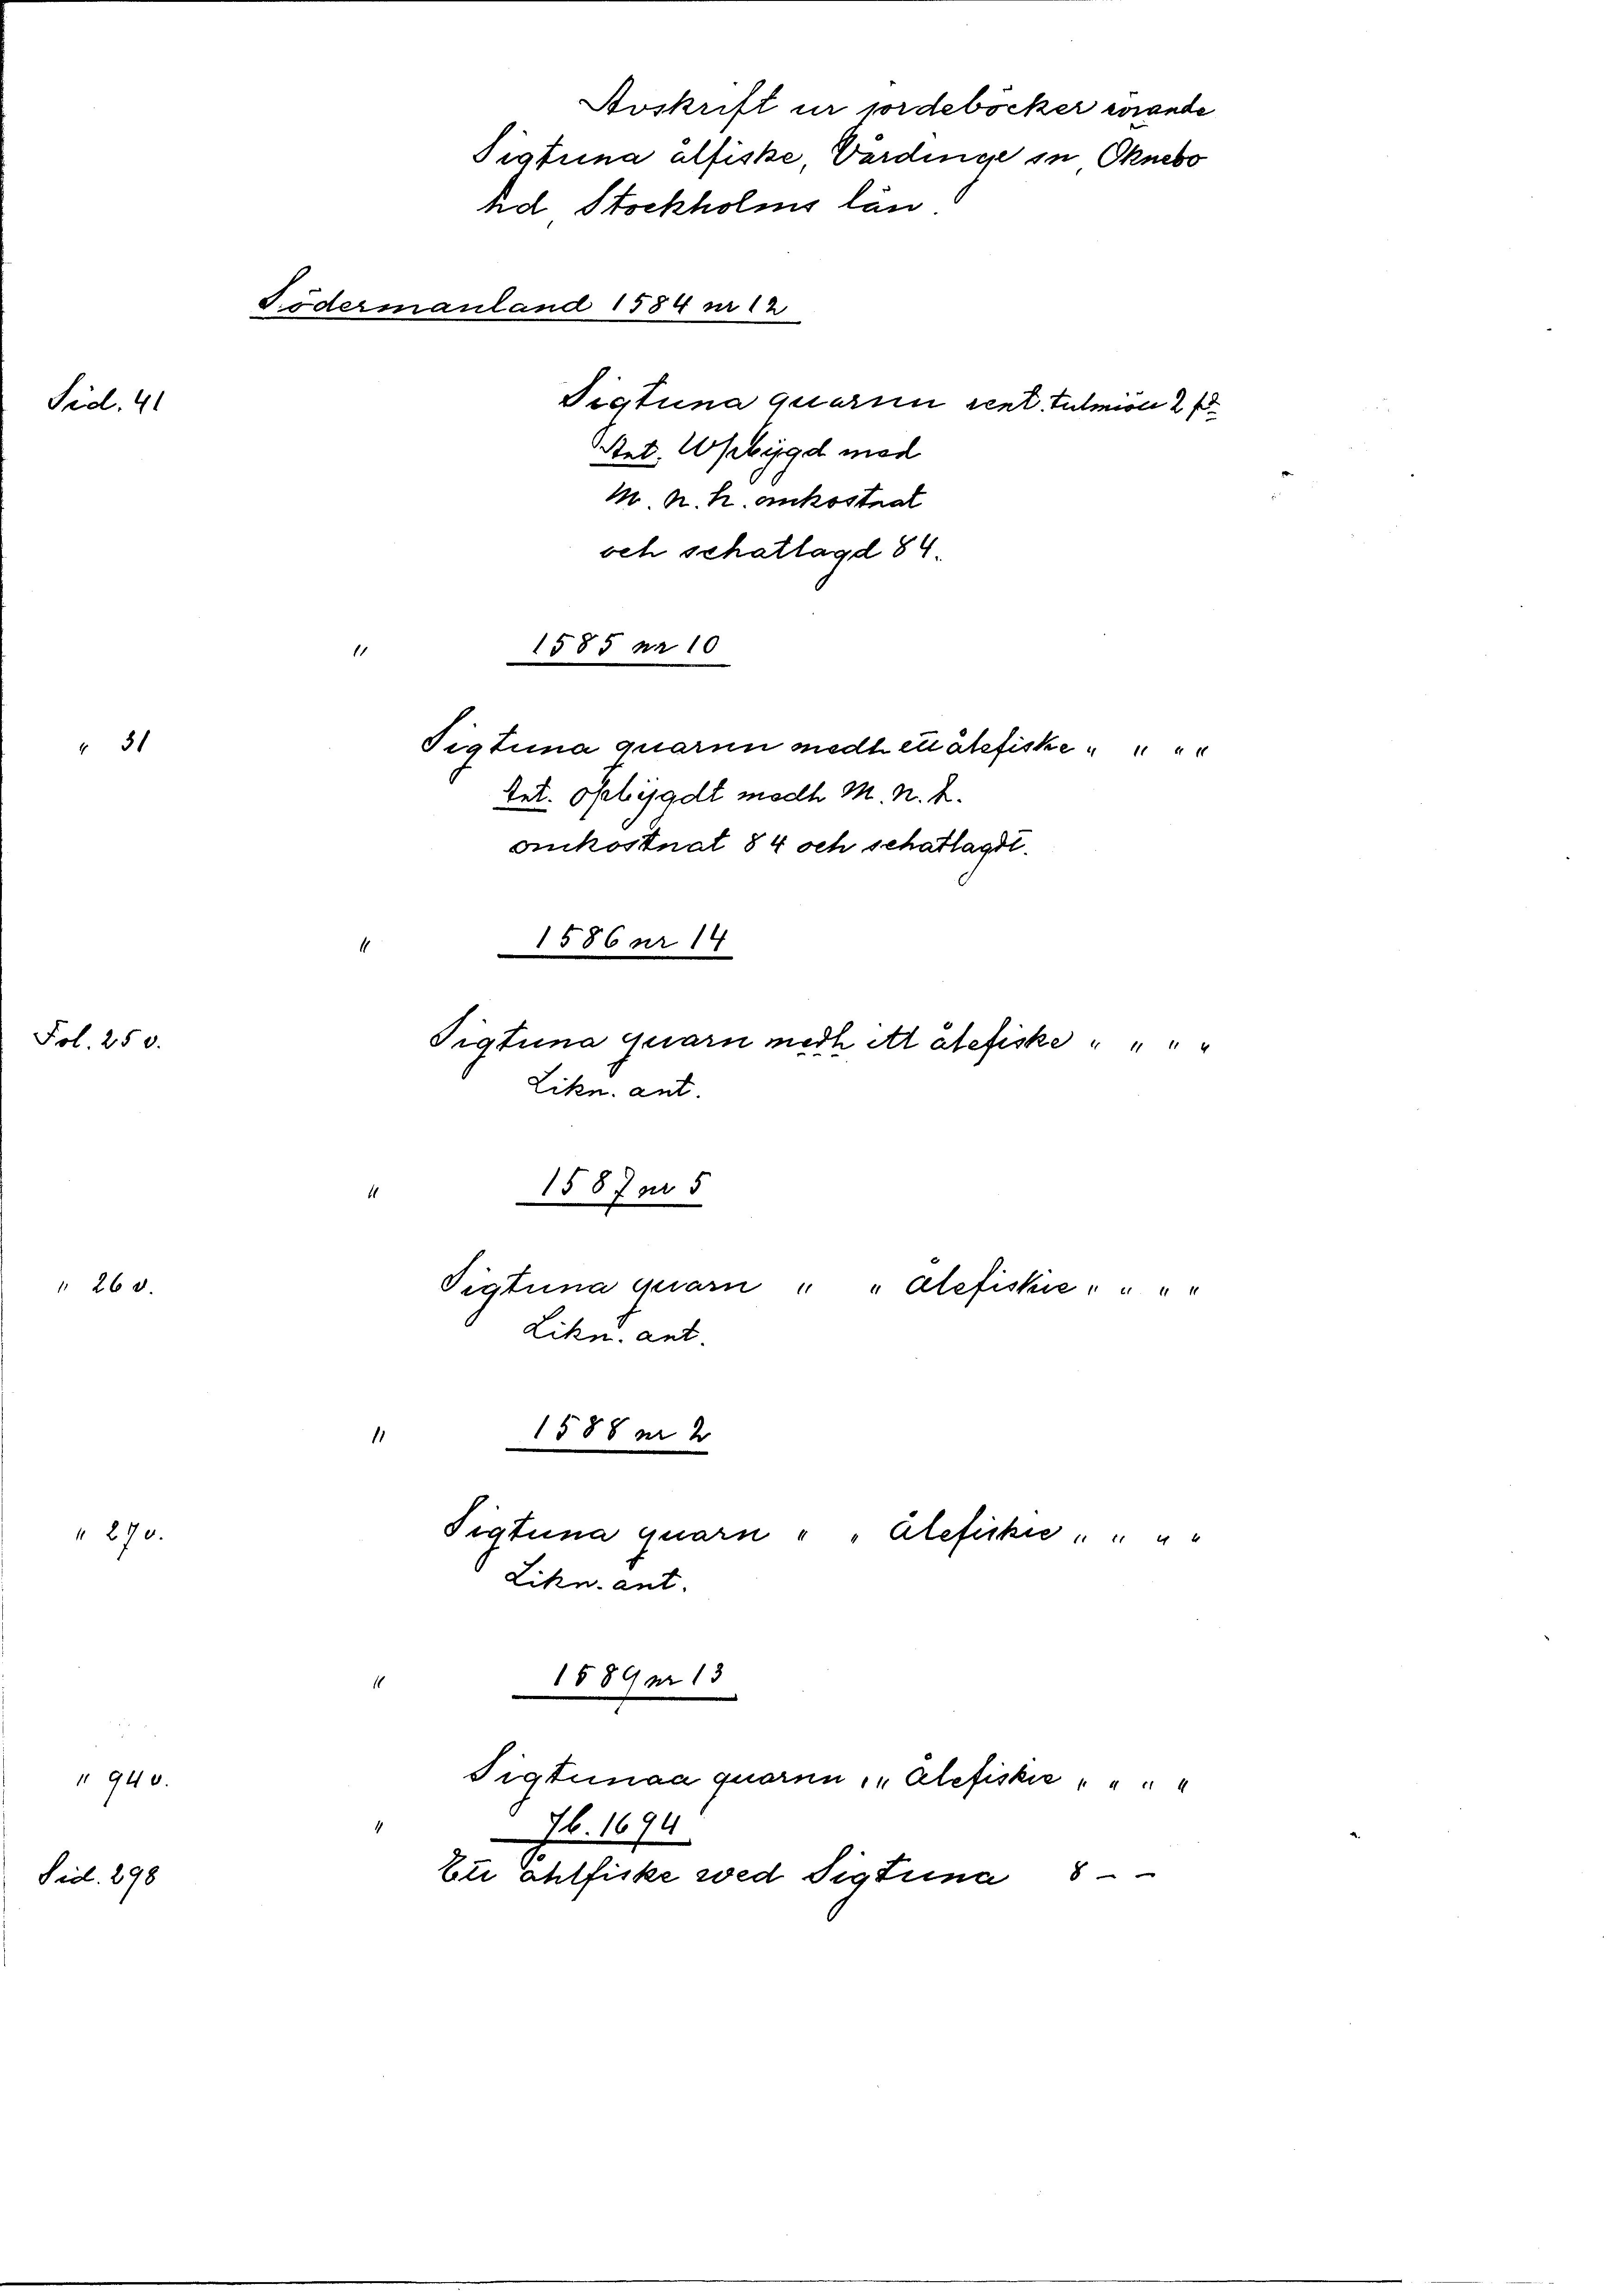 Avskrift ur jordeböcker rörande
Sigtuna ålfiske, Vårdinge sn, Öknebo
hd, Stockholms län.
Södermanland 1584 nr 12
Sid. 41 Sigtuna quarnn rent. tulmiöll 2 p
Ant. Wpbijgd med
M. n. h. omkostnat
och schatlagd 84.
" 1585 nr 10
" 31 Sigtuna quarnn medh ett ålefiske " " " "
Ant. opbijgdt medh M. n. h.
omkostnat 84 och schatlagdt.
" 1586 nr 14
Fol. 25 v. Sigtuna quarn medh itt ålefiske " " " "
Likn. ant.
" 1587 nr 5
" 26 v. Sigtuna quarn " " ålefiskie " " " "
Likn. ant.
" 1588 nr 2
" 27 v. Sigtuna quarn " " ålefiskie " " " "
Likn. ant.
" 1589 nr 13
" 94 v. Sigtunaa quarnn " " ålefiskie " " " "
" Jb. 1694
Sid. 298 Ett åhlfiske wed Sigtuna 8 - -